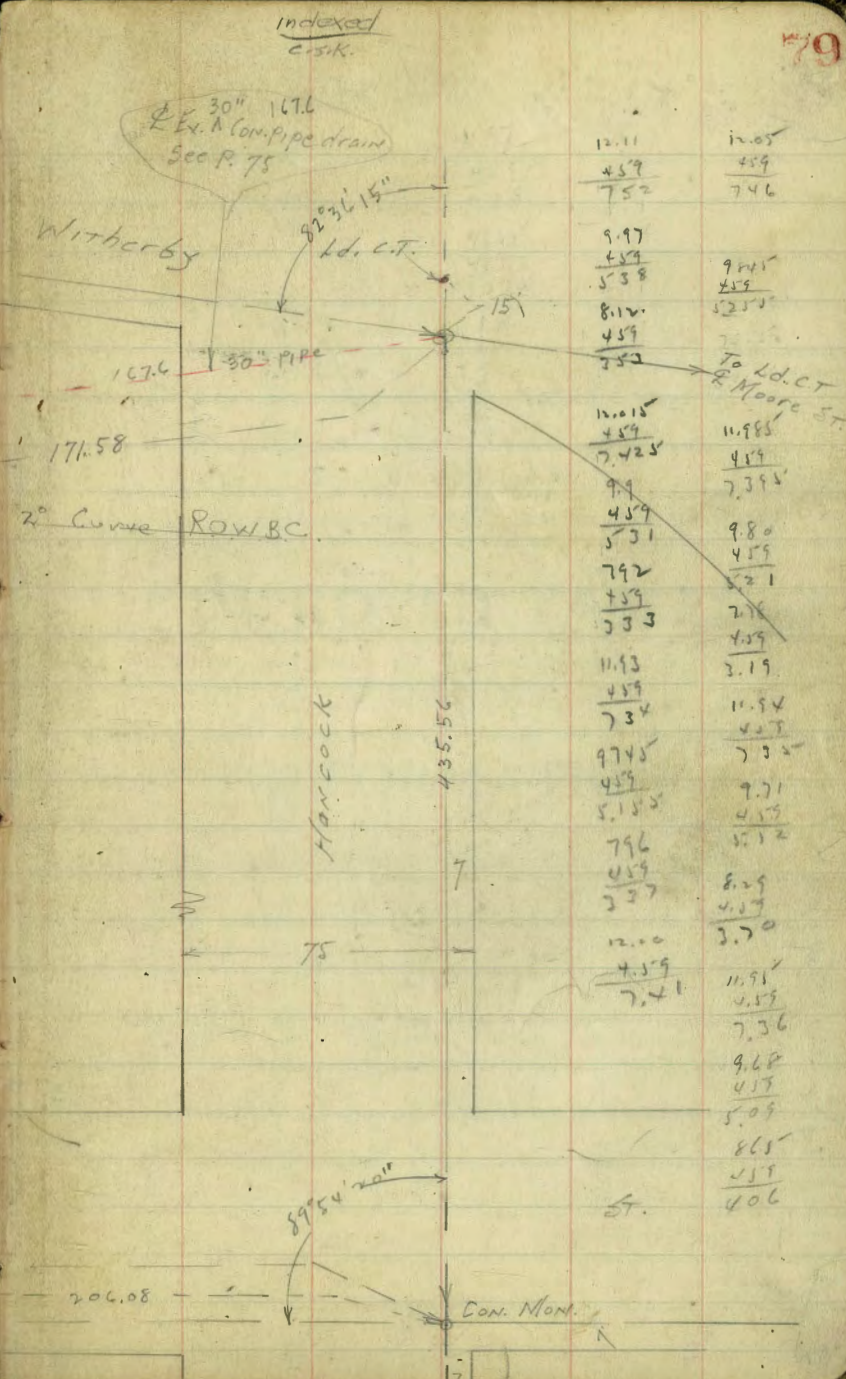 Indexed
C.S.K.
79
30" 167.6
℄ Ex. Con. pipe drain
See P. 75
82°36'15"
Witherby
Ld. C.T.
15'
167.6
30" PIPE
To Ld. C.T.
℄ Moore ST.
171.58
2° Curve ROW BC.
Hancock
435.56
7
75
89°54'20"
ST.
206.08
CON. MON.
12.11
459
752
9.97
459
538
8.12
459
353
12.015
459
7.425
9.9
459
531
792
459
333
11.93
459
734
9745
459
5.155
796
459
337
12.00
4.59
7.41
12.05
459
746
9845
459
5255
11.985
459
7.395
9.80
459
521
7.78
4.59
3.19
11.94
459
735
9.71
459
5.12
8.29
4.59
3.70
11.95
4.59
7.36
9.68
459
5.09
865
459
406